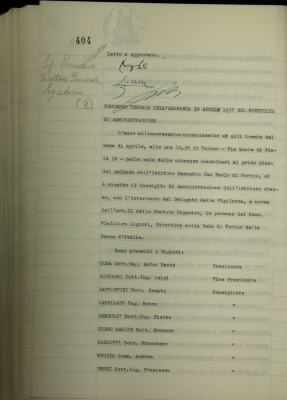 404
Letto e approvato.
Sig. Presidente
Direttore Generale
Segretario
(8)
PROCESSO VERBALE DELL'ADUNANZA 30 APRILE 1957 DEL CONSIGLIO
DI AMMINISTRAZIONE
L'anno millenovecentocinquantasette ed alli trenta del
mese di aprile, alle ore 10,30 in Torino - Via Monte di Pie-
tà 32 - nella sala delle adunanze consultori al primo piano
del palazzo dell'Istituto Bancario San Paolo di Torino, si
è riunito il Consiglio di Amministrazione dell'Istituto stes-
so, con l'intervento del Delegato della Vigilanza, a norma
dell'art.31 dello Statuto Organico, in persona del Comm.
Vladimiro Liguori, Direttore della Sede di Torino della
Banca d'Italia.
Sono presenti i Signori:
Dott.Ing. Anton Dante Presidente
Dott.Ing. Luigi Vice Presidente
Dott. Renato Consigliere
Rag. Rocco "
Dott.Ing. Pietro "
Dott. "
Dott. Francesco "
Comm. Andrea "
Dott.Ing. Francesco "